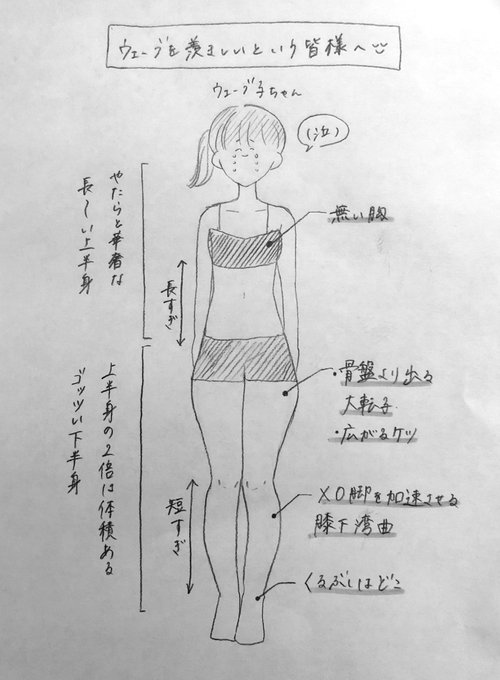 ウェーブを羨ましいという皆様へ
ウェーブ子ちゃん
(泣)
やたらと華奢な
長〜い上半身
無い胸
長すぎ
・骨盤より出る
大転子
・広がるケツ
上半身の2倍は体積ある
ゴッツい下半身
短すぎ
XO脚を加速させる
膝下湾曲
くるぶしはどこ